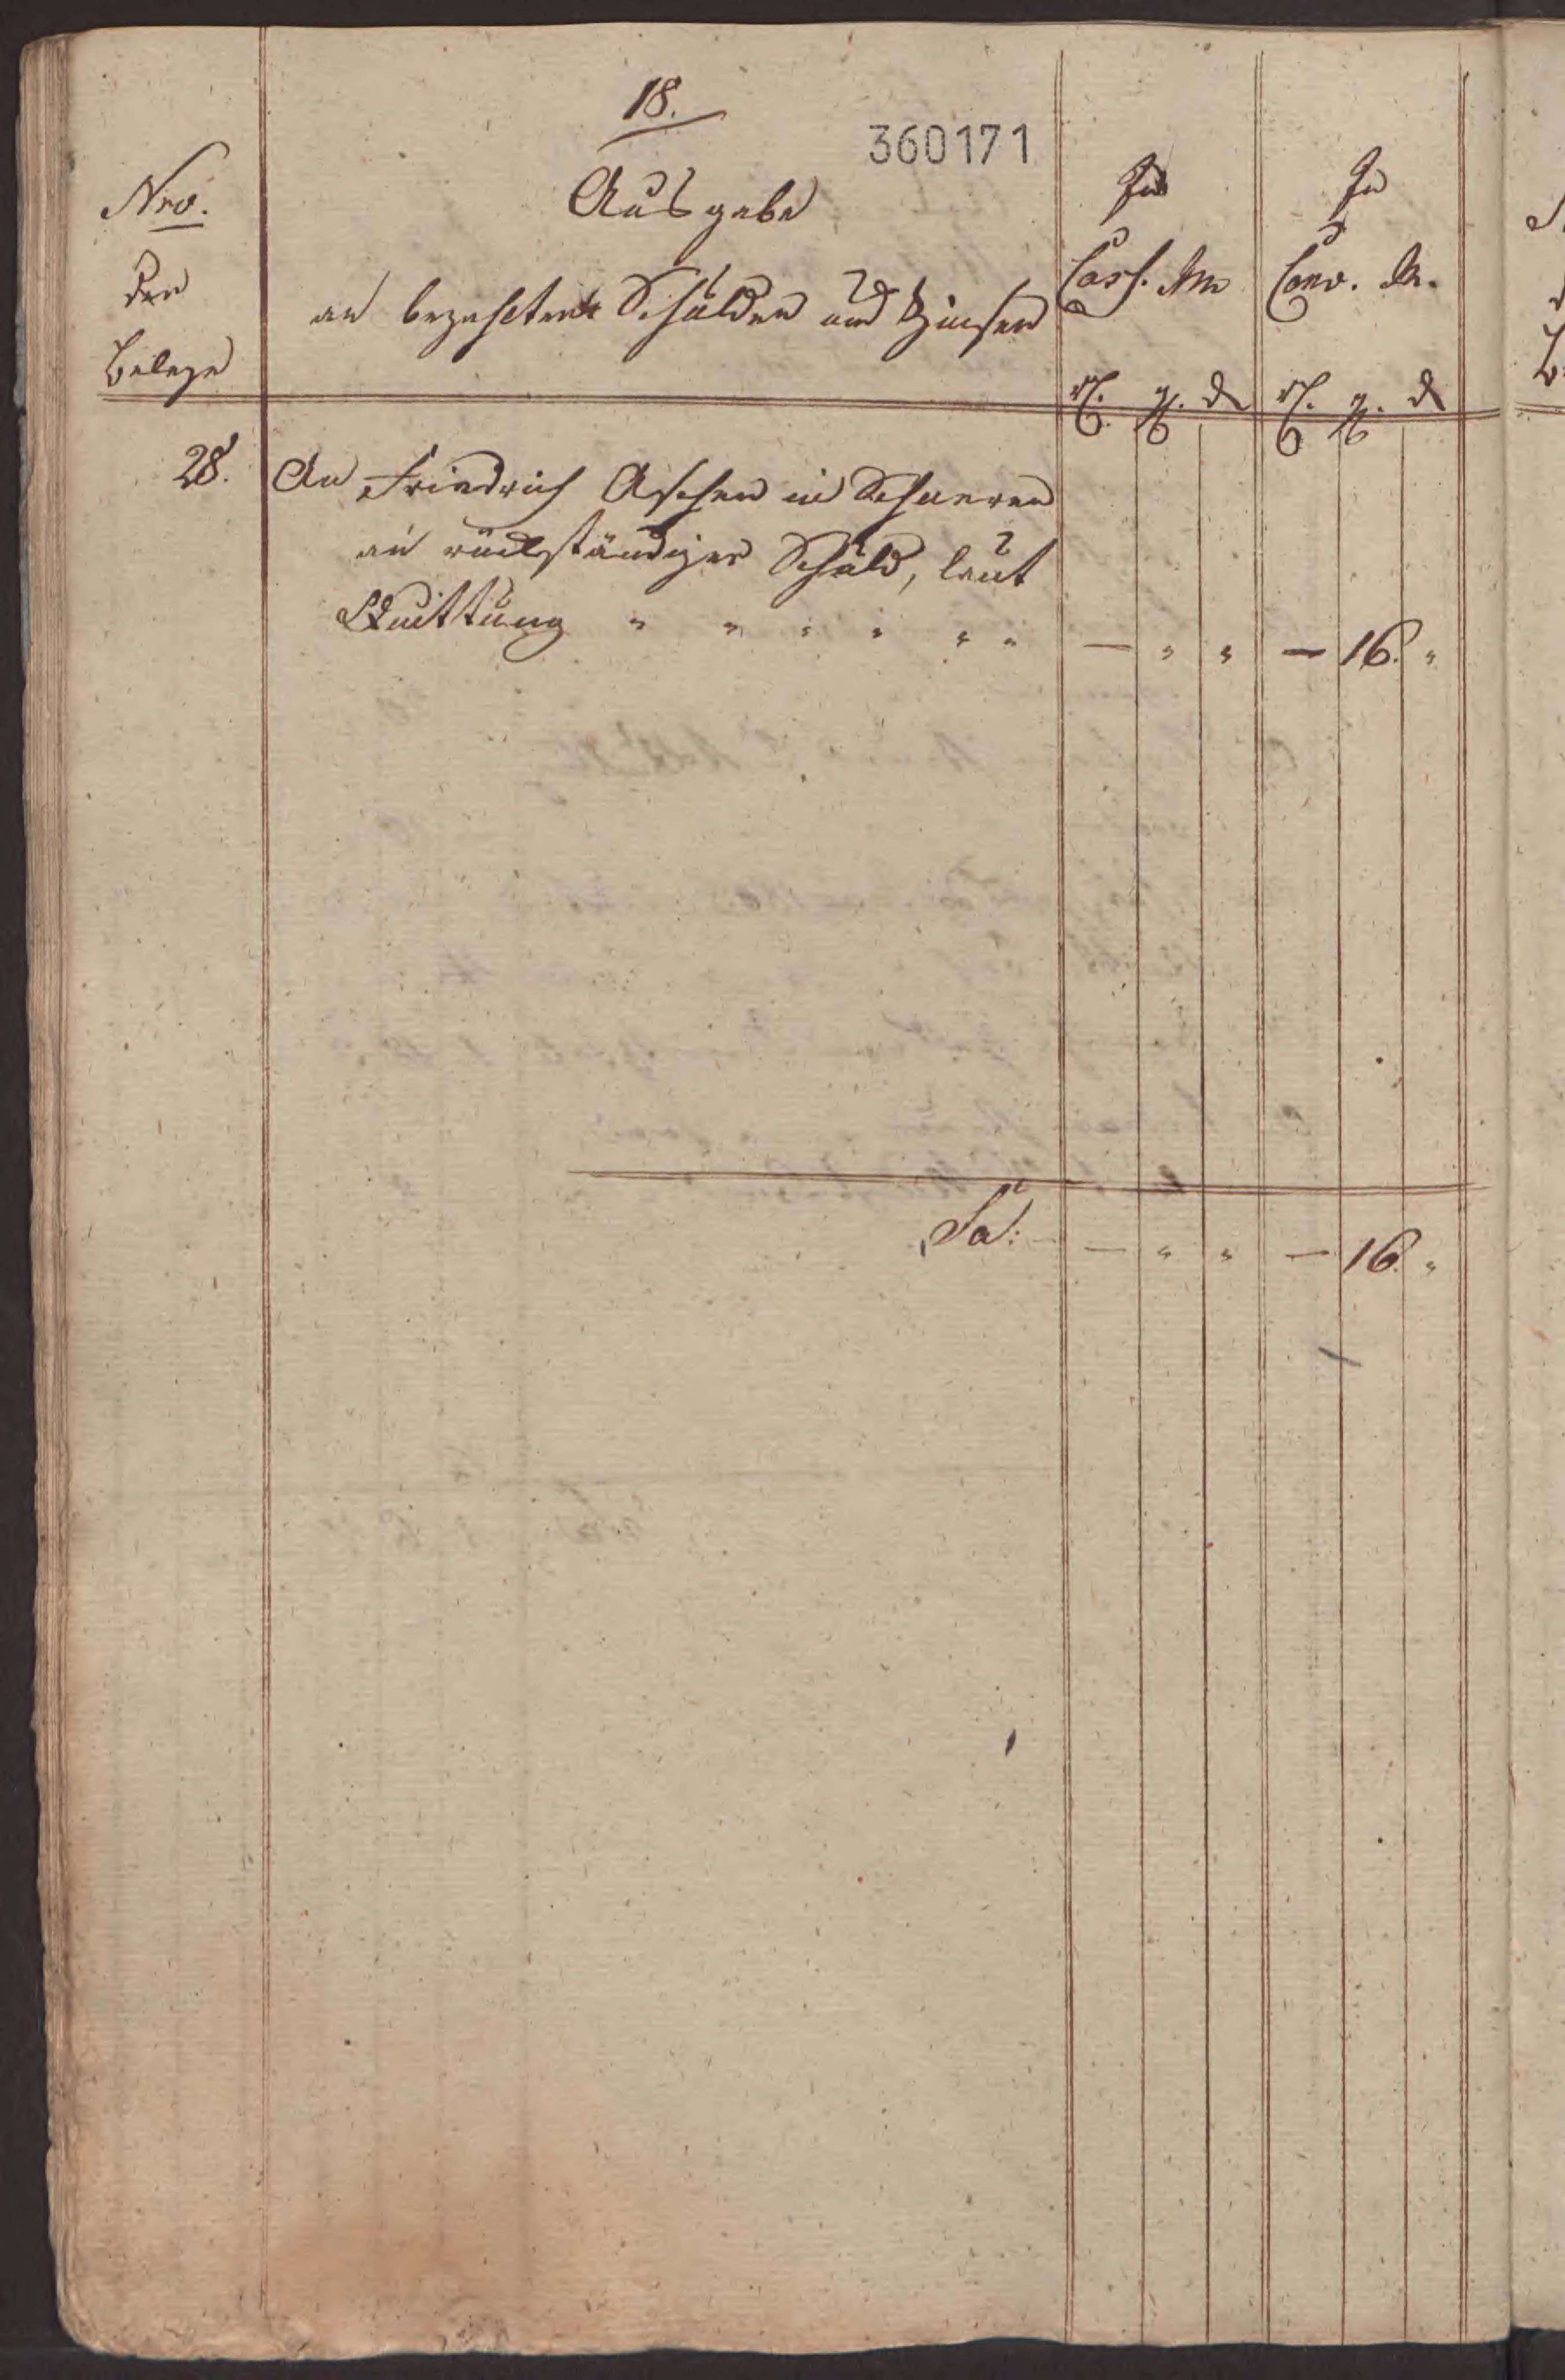 18.
360171
Nro.
der
Belege
Ausgabe
an bezahlten Schulden und Zinsen
In
Cass. M.
In
Conv. M.
rl. g. d
rl. g. d
28. An Friedrich Aschen in Schauen
an rückständiger Schuld, laut
Quittung " " " " " " — " " — 16. "
Sa: — " " — 16. "